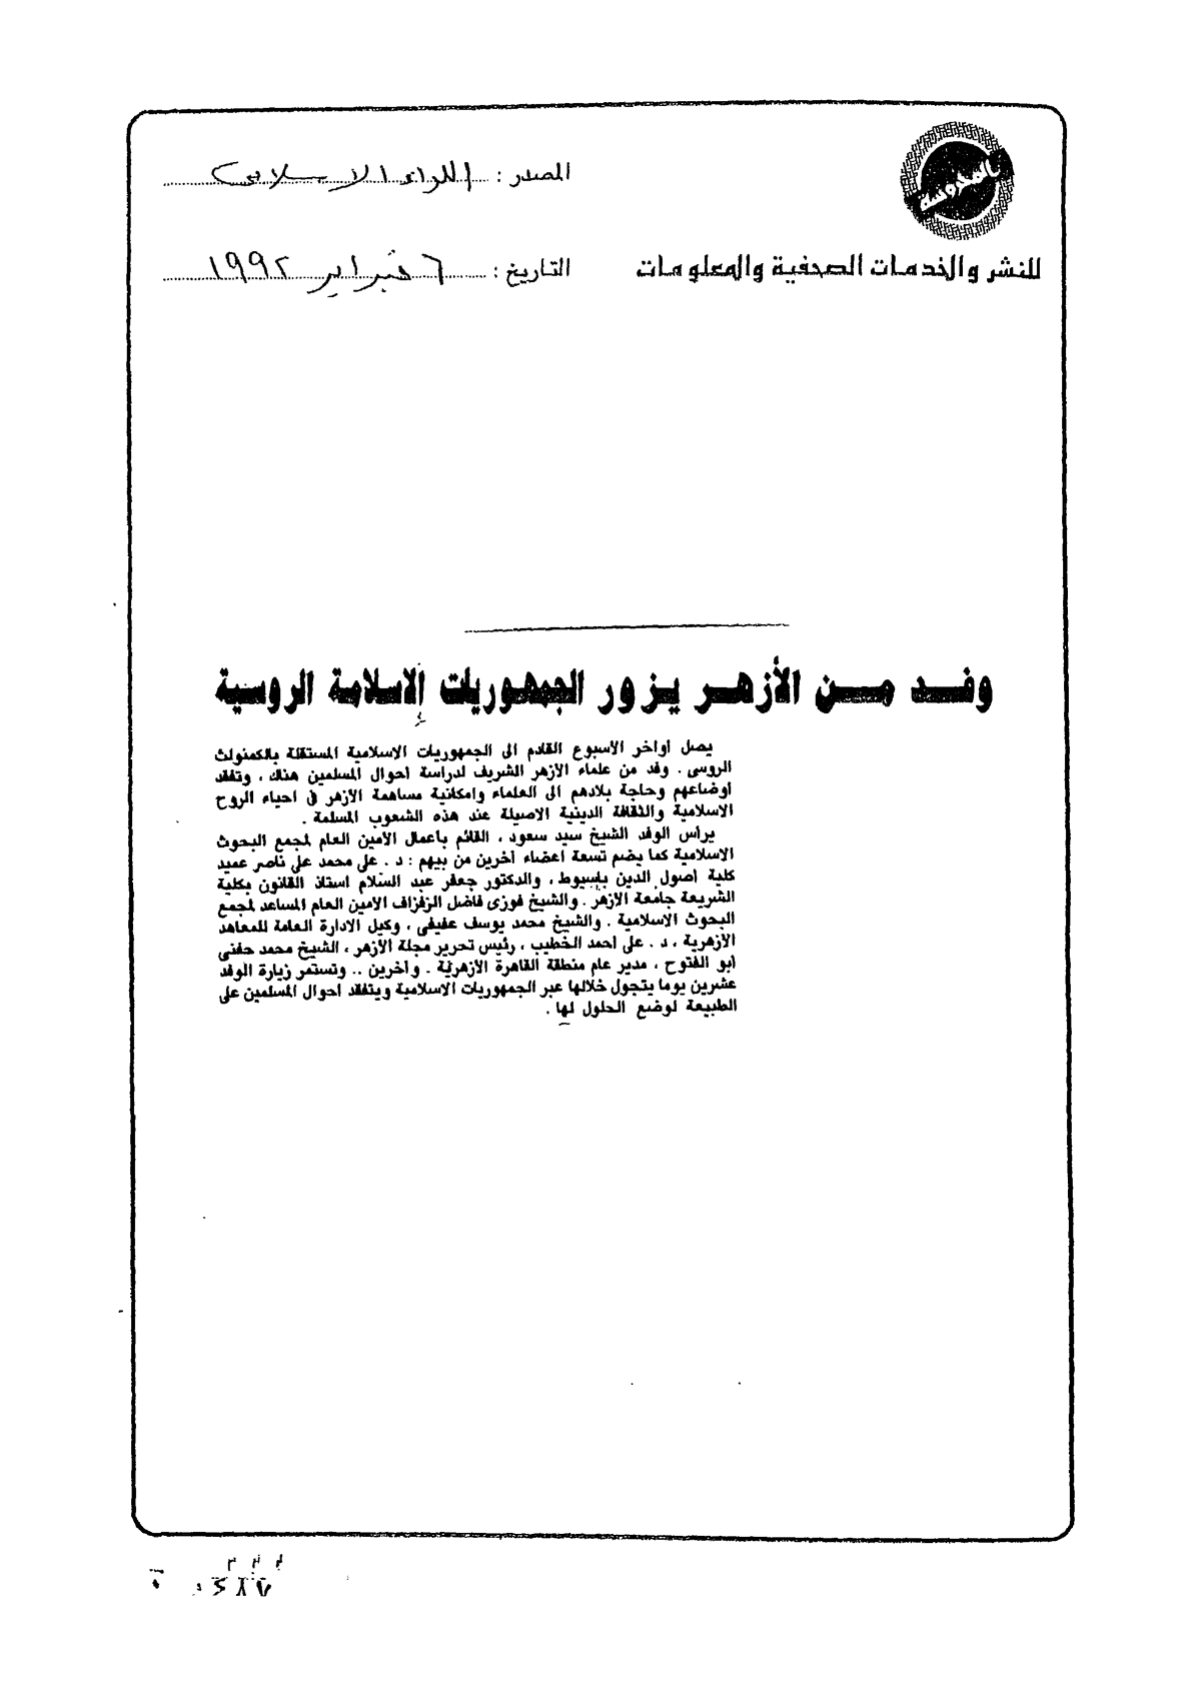 المحروسة
المصدر : اللواء الاسلامى
للنشر والخدمات الصحفية والمعلومات
التاريخ : ٦ فبراير ١٩٩٢
وفد من الأزهر يزور الجمهوريات الإسلامة الروسية
يصل اواخر الاسبوع القادم الى الجمهوريات الاسلامية المستقلة بالكمنولث
الروسى . وفد من علماء الازهر الشريف لدراسة احوال المسلمين هناك ، وتفقد
اوضاعهم وحاجة بلادهم الى العلماء وامكانية مساهمة الازهر فى احياء الروح
الاسلامية والثقافة الدينية الاصيلة عند هذه الشعوب المسلمة .
يرأس الوفد الشيخ سيد سعود ، القائم باعمال الامين العام لمجمع البحوث
الاسلامية كما يضم تسعة اعضاء آخرين من بيهم : د . على محمد على ناصر عميد
كلية اصول الدين باسيوط ، والدكتور جعفر عبد السلام استاذ القانون بكلية
الشريعة جامعة الازهر . والشيخ فوزى فاضل الزفزاف الامين العام المساعد لمجمع
البحوث الاسلامية . والشيخ محمد يوسف عفيفى ، وكيل الادارة العامة للمعاهد
الازهرية ، د . على احمد الخطيب ، رئيس تحرير مجلة الازهر ، الشيخ محمد حفنى
ابو الفتوح ، مدير عام منطقة القاهرة الازهرية . وآخرين .. وتستمر زيارة الوفد
عشرين يوما يتجول خلالها عبر الجمهوريات الاسلامية ويتفقد احوال المسلمين على
الطبيعة لوضع الحلول لها .